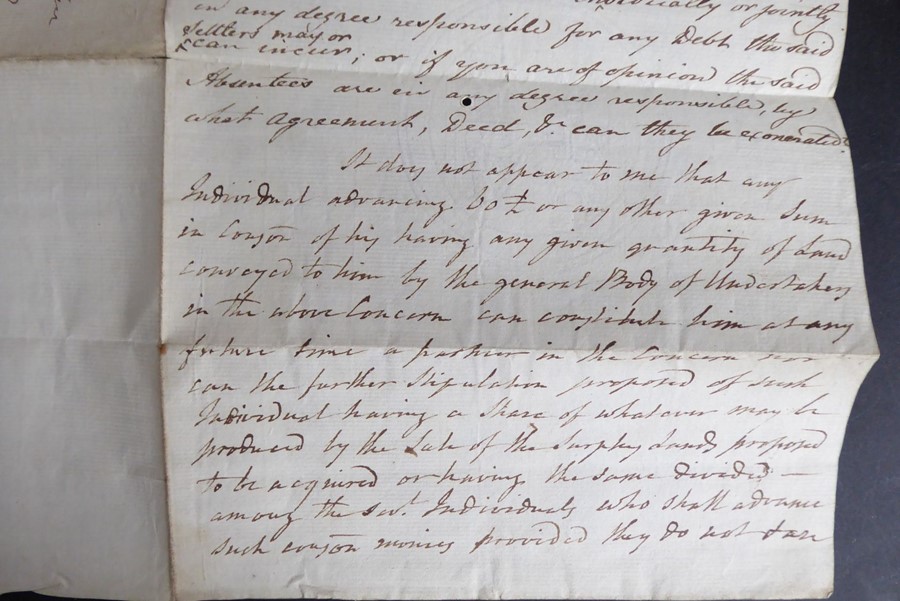 individually or jointly
in any degree responsible for any Debt the said
settlers may or
can incur; or if you are of opinion the said
Absentees are in any degree responsible, by
what Agreement, Deed, &c. can they be exonerated?
It does not appear to me that any
Individual advancing 60 £ or any other given Sum
in Conson of his having any given quantity of Land
conveyed to him by the general Body of Undertakers
in the above Concern can constitute him at any
future time a partner in the Concern nor
can the further Stipulation proposed of such
Individual having a Share of whatever may be
produced by the Sale of the Surplus Lands proposed
to be acquired or having the same divided —
among the sevl. Individuals who shall advance
such conson monies provided they do not